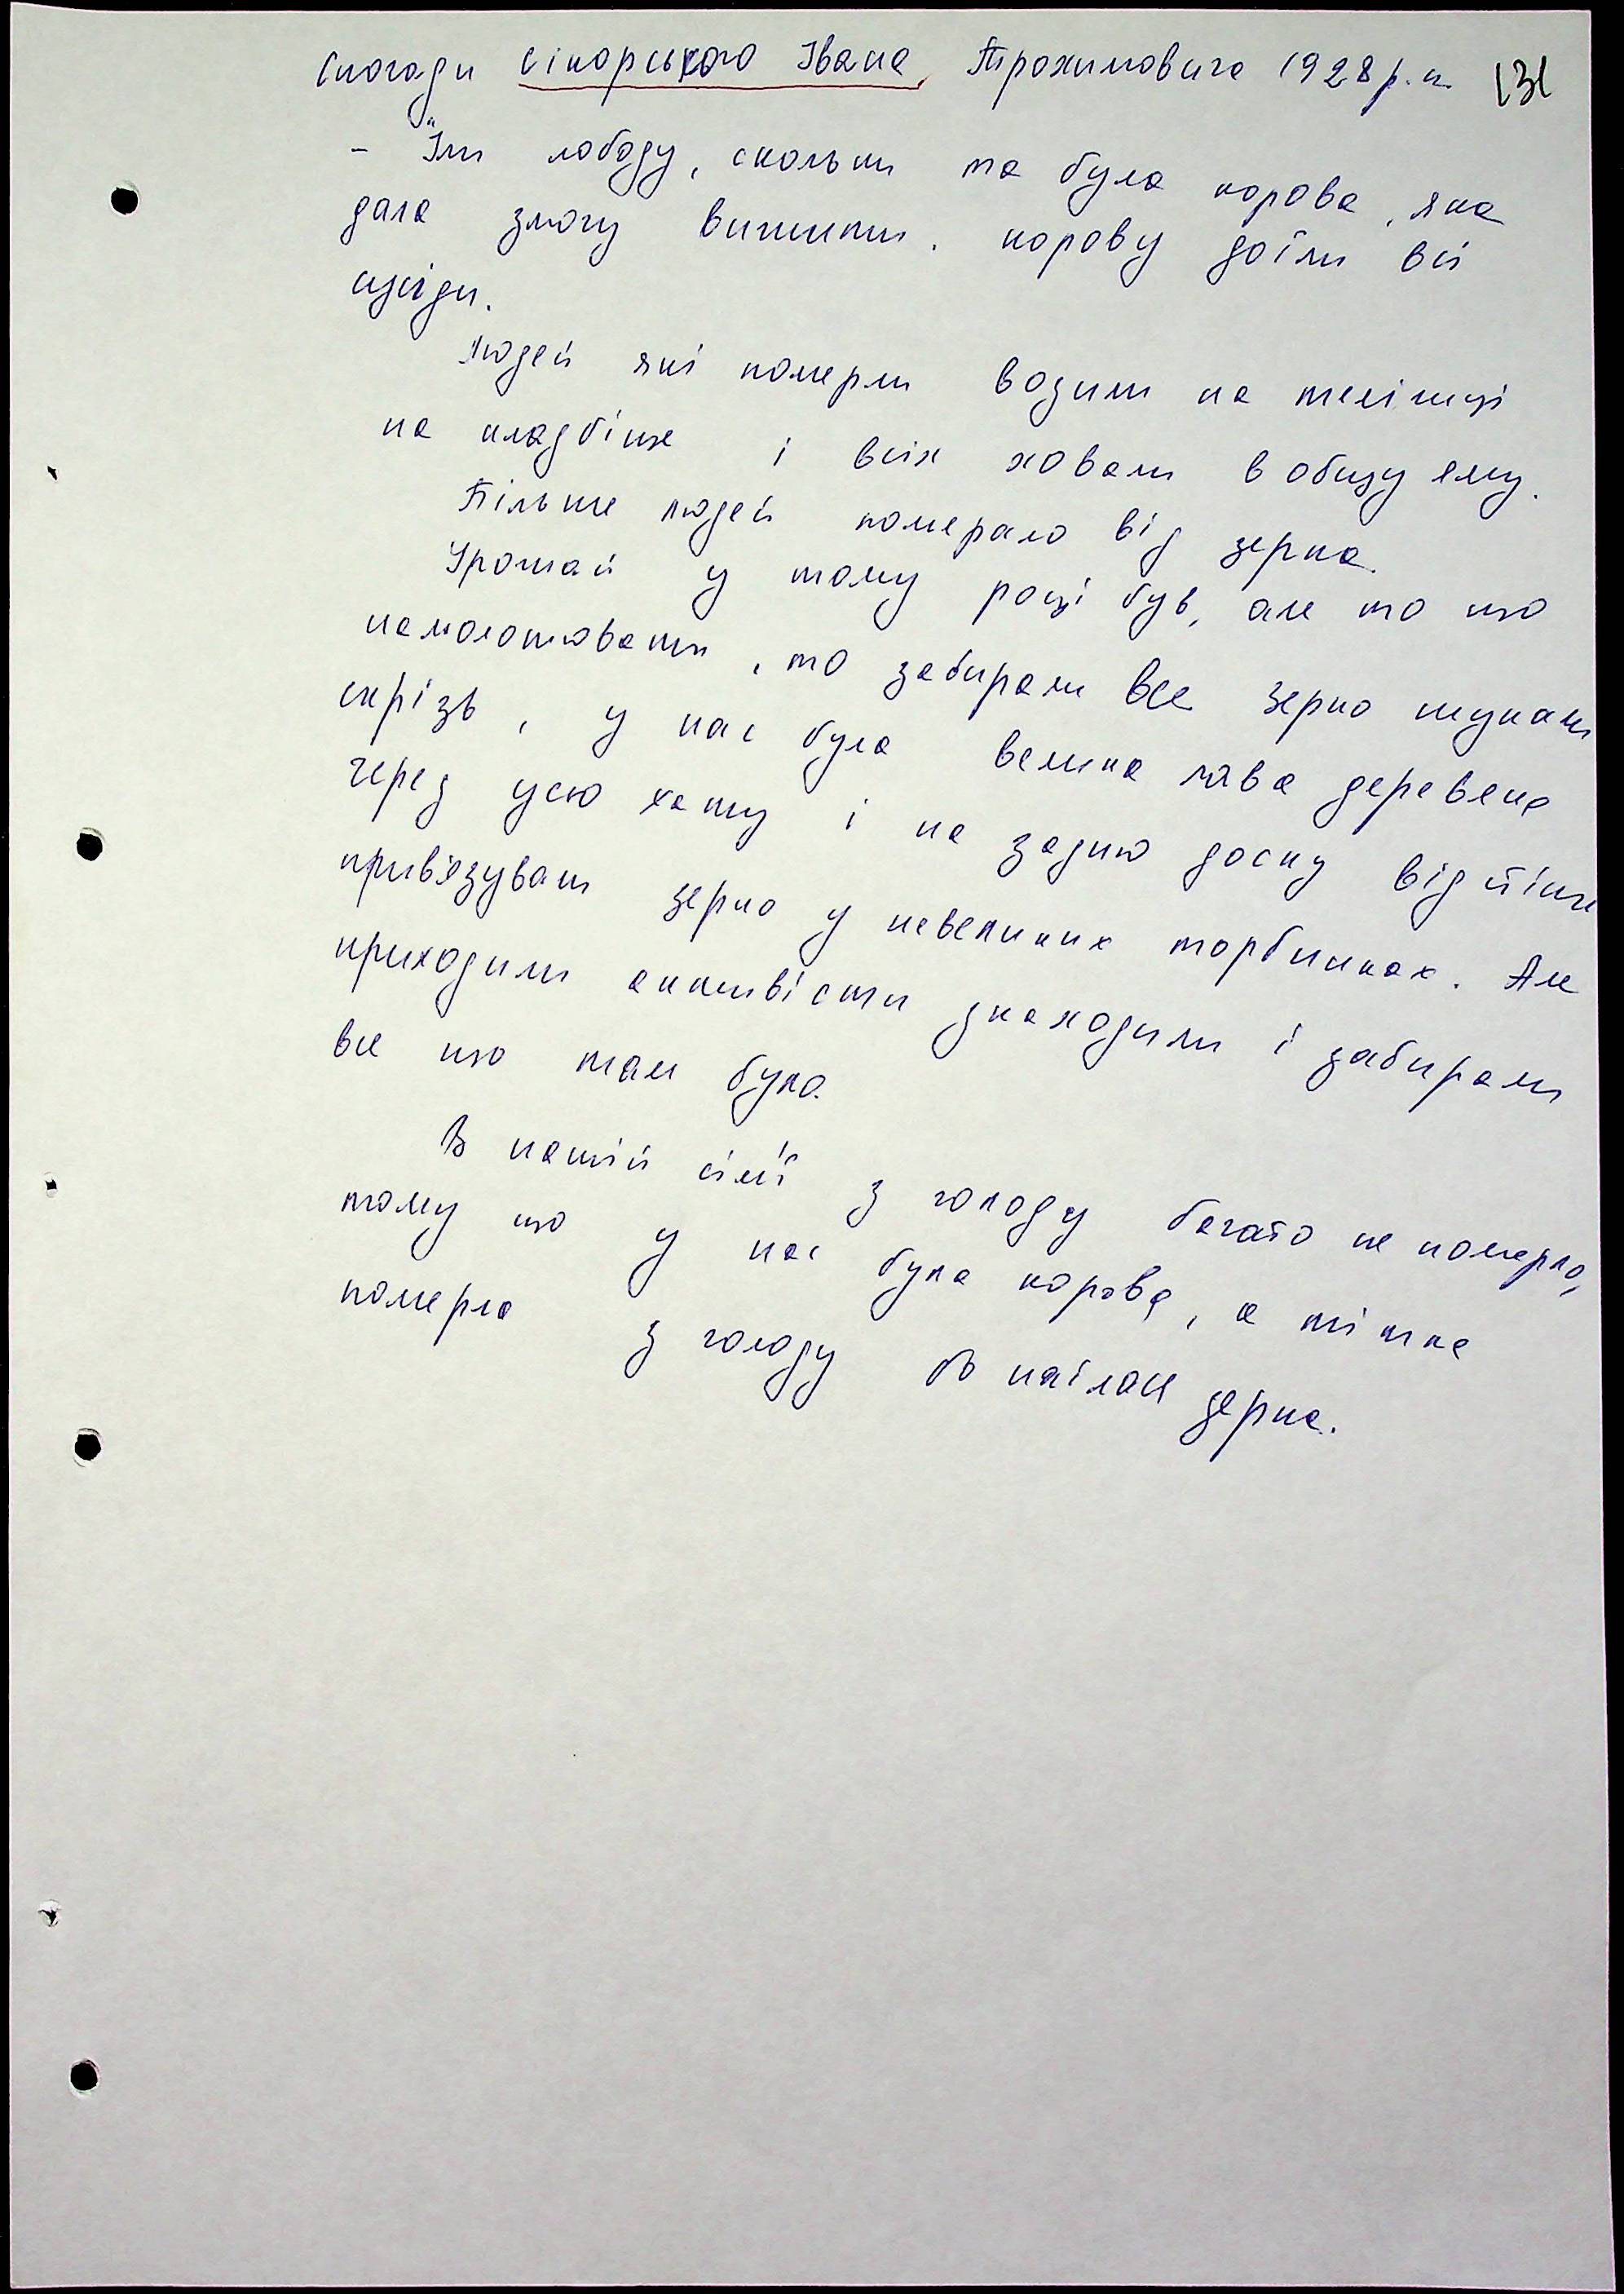 Спогади Сікорського Івана Трохимовича 1928 р.н. 131
- Їли лободу, скольки та була корова, яка
дала змогу вижити. корову доїли всі
сусіди.
Людей які померли возили на теліжці
на кладбіще і всіх ховали в общу яму.
Більше людей померало від зерна.
Урожай у тому році був, але то що
намолотювати, то забирали все зерно шукали
скрізь, у нас була велика лава деревяна
через усю хату і на задню доску від стіни
прив'язували зерно у невеликих торбинках. Але
приходили активісти знаходили і забирали
все що там було.
В нашій сім'ї з голоду багато не померло,
тому що у нас була корова, а тітка
померла з голоду бо наїлася зерна.